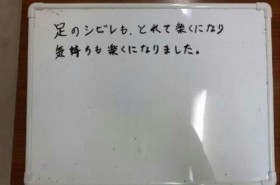 足のシビレも、とれて楽くになり
気持ちも楽くになりました。